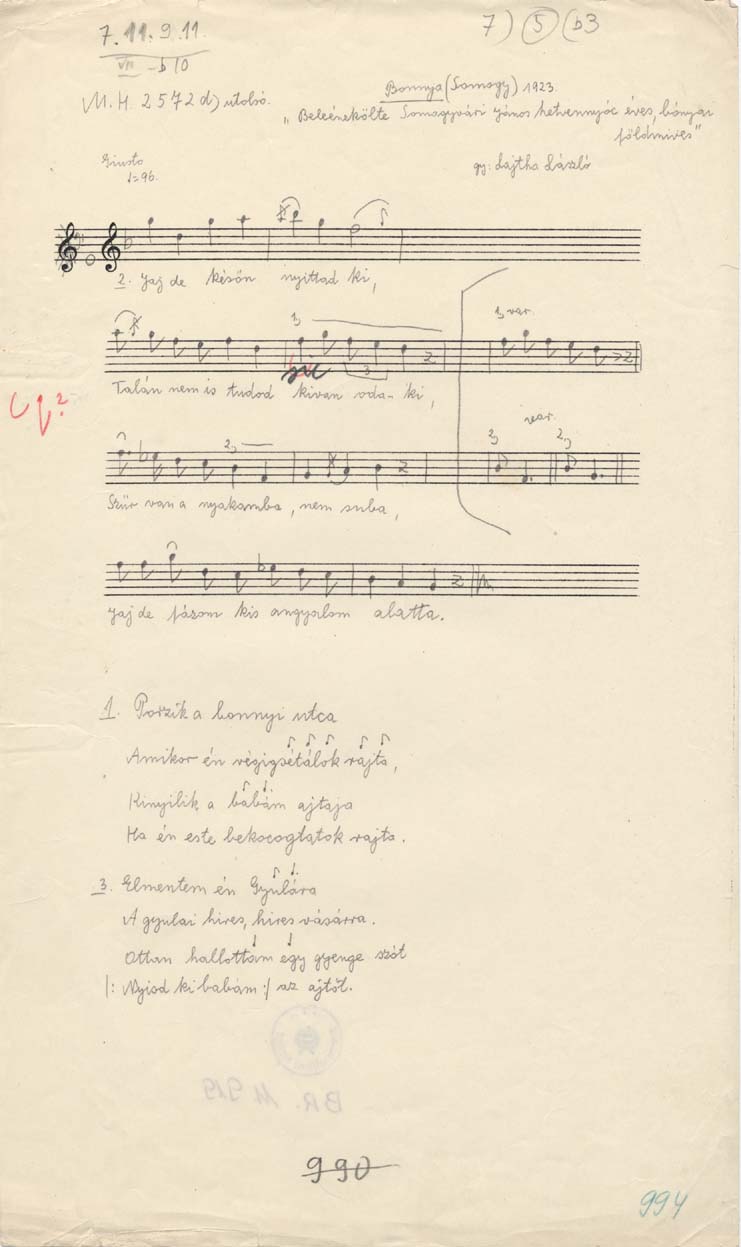 7. 11. 9. 11.
VII -b 10
7) 5 (b3
M. H. 2572 d) utolsó.
Bonnya (Somogy) 1923.
„Beleénekölte Somogyvári János hetvennyóc éves, bonyai
földmives"
Giusto
♩=96.
gy: Lajtha László
2. Jaj de későn nyittad ki,
1, var.
1,
sic
3
Talán nem is tudod kivan oda-ki,
var.
2,
2, 2,
Szür van a nyakamba, nem suba,
Jaj de fázom kis angyalom alatta.
1. Porzik a bonnyi utca
Amikor én végigsétálok rajta,
Kinyilik a babám ajtaja
Ha én este bekocogtatok rajta.
3. Elmentem én Gyulára
A gyulai hires, hires vásárra.
Ottan hallottam egy gyenge szót
|: Nyisd ki babám :| az ajtót.
BR. 11 919
990
994